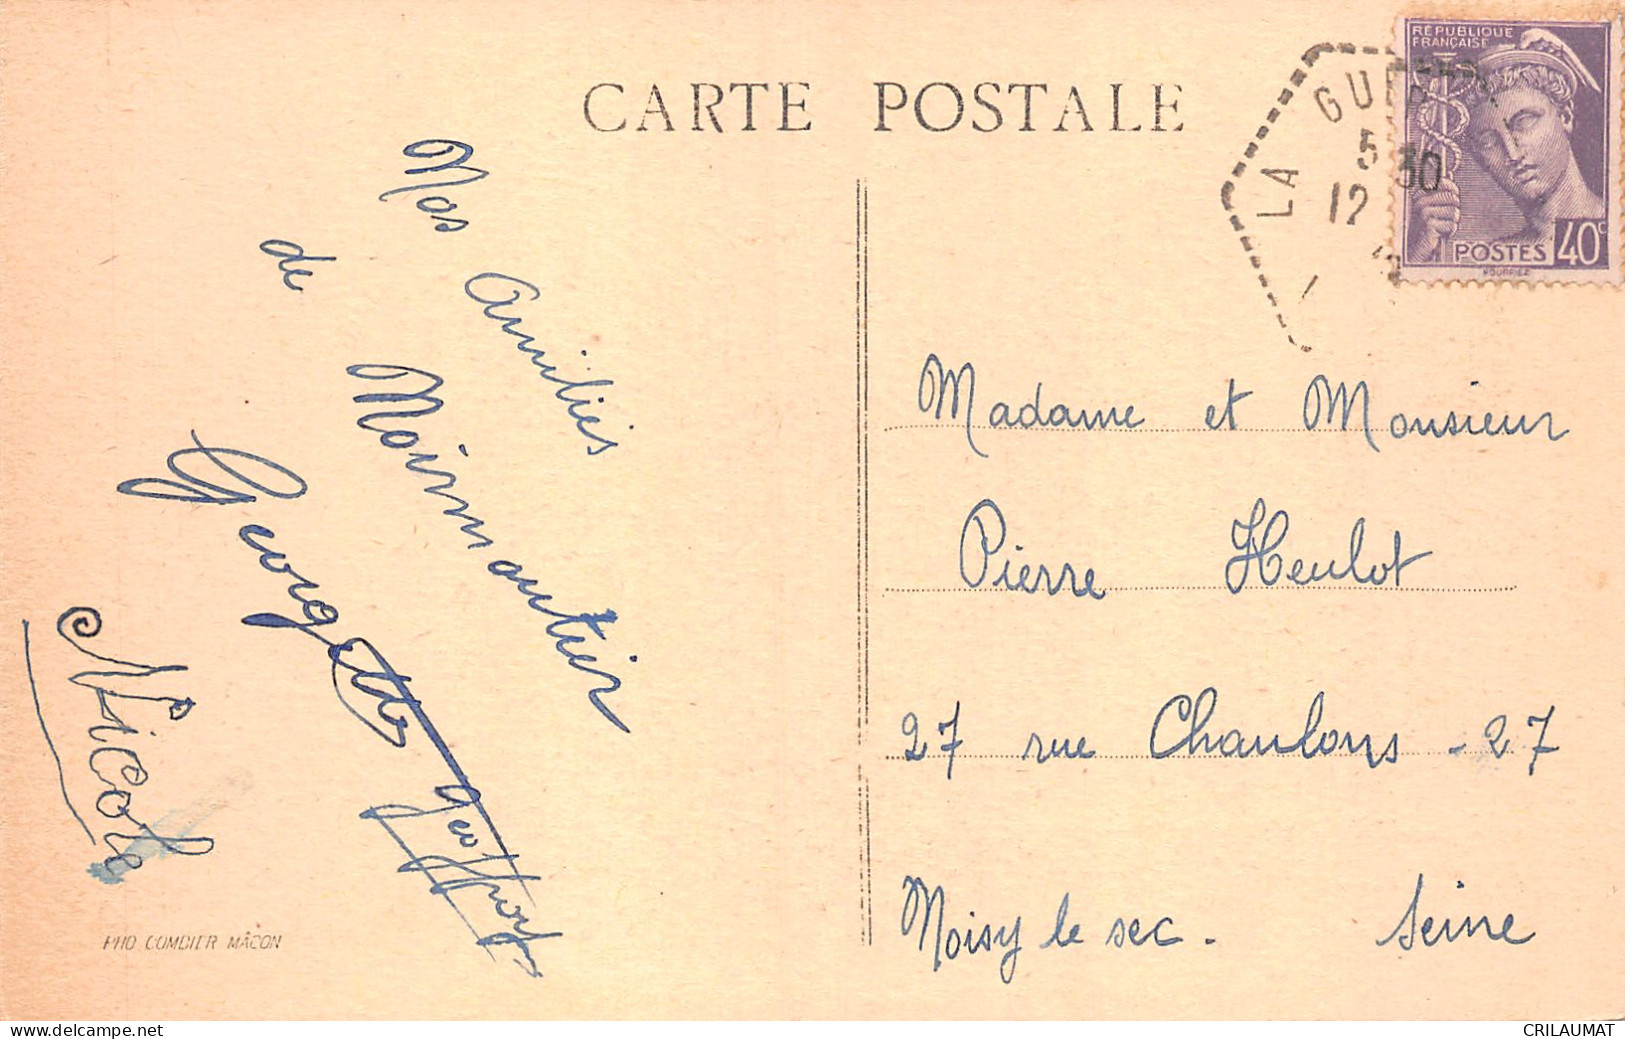 CARTE POSTALE
Nos Amitiés
de Noirmoutier
Georgette Geoffroy
Nicole
PHO COMBIER MÂCON
RÉPUBLIQUE
FRANÇAISE
POSTES 40c
LA GUER
5 30
12
Madame et Monsieur
Pierre Heulot
27 rue Chaulons - 27
Noisy le sec. Seine
delcampe.net
CRILAUMAT